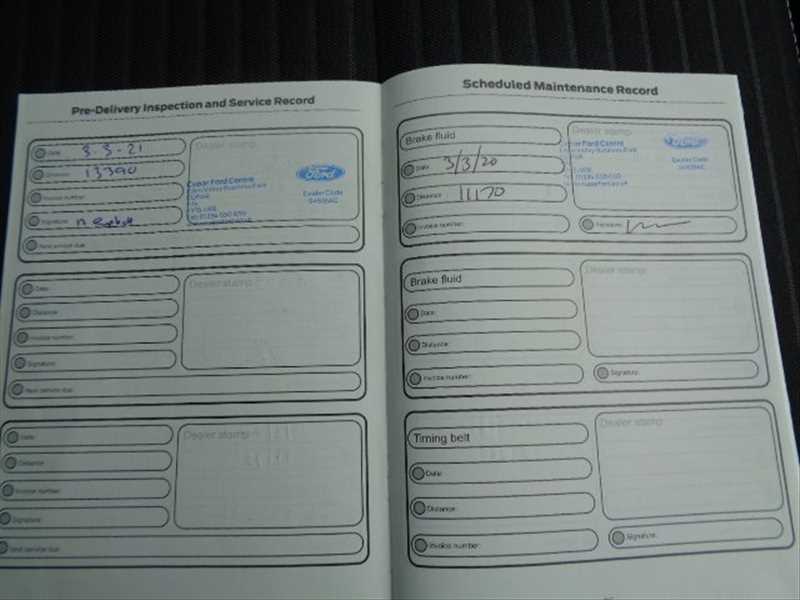 Pre-Delivery Inspection and Service Record
Date: 3-3-21
Distance: 13390
Invoice number:
Signature:
Next service due:
Dealer stamp
Cupar Ford Centre
Ford
Dealer Code
Date:
Distance:
Invoice number:
Signature:
Next service due:
Dealer stamp
Date:
Distance:
Invoice number:
Signature:
Next service due:
Dealer stamp
Scheduled Maintenance Record
Brake fluid
Date: 3/3/20
Distance: 11170
Invoice number:
Dealer stamp
Cupar Ford Centre
Ford
Dealer Code
Signature:
Brake fluid
Date:
Distance:
Invoice number:
Dealer stamp
Signature:
Timing belt
Date:
Distance:
Invoice number:
Dealer stamp
Signature: